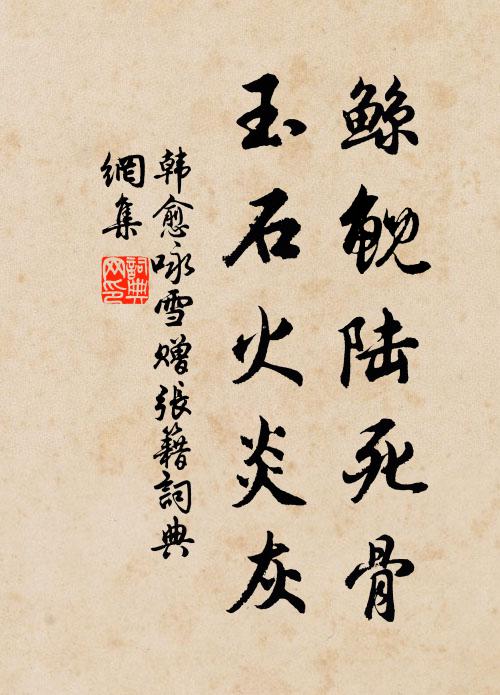 鲸鲵陆死骨
玉石火炎灰
韩愈咏雪赠張籍詞典
網集
詞典
网印